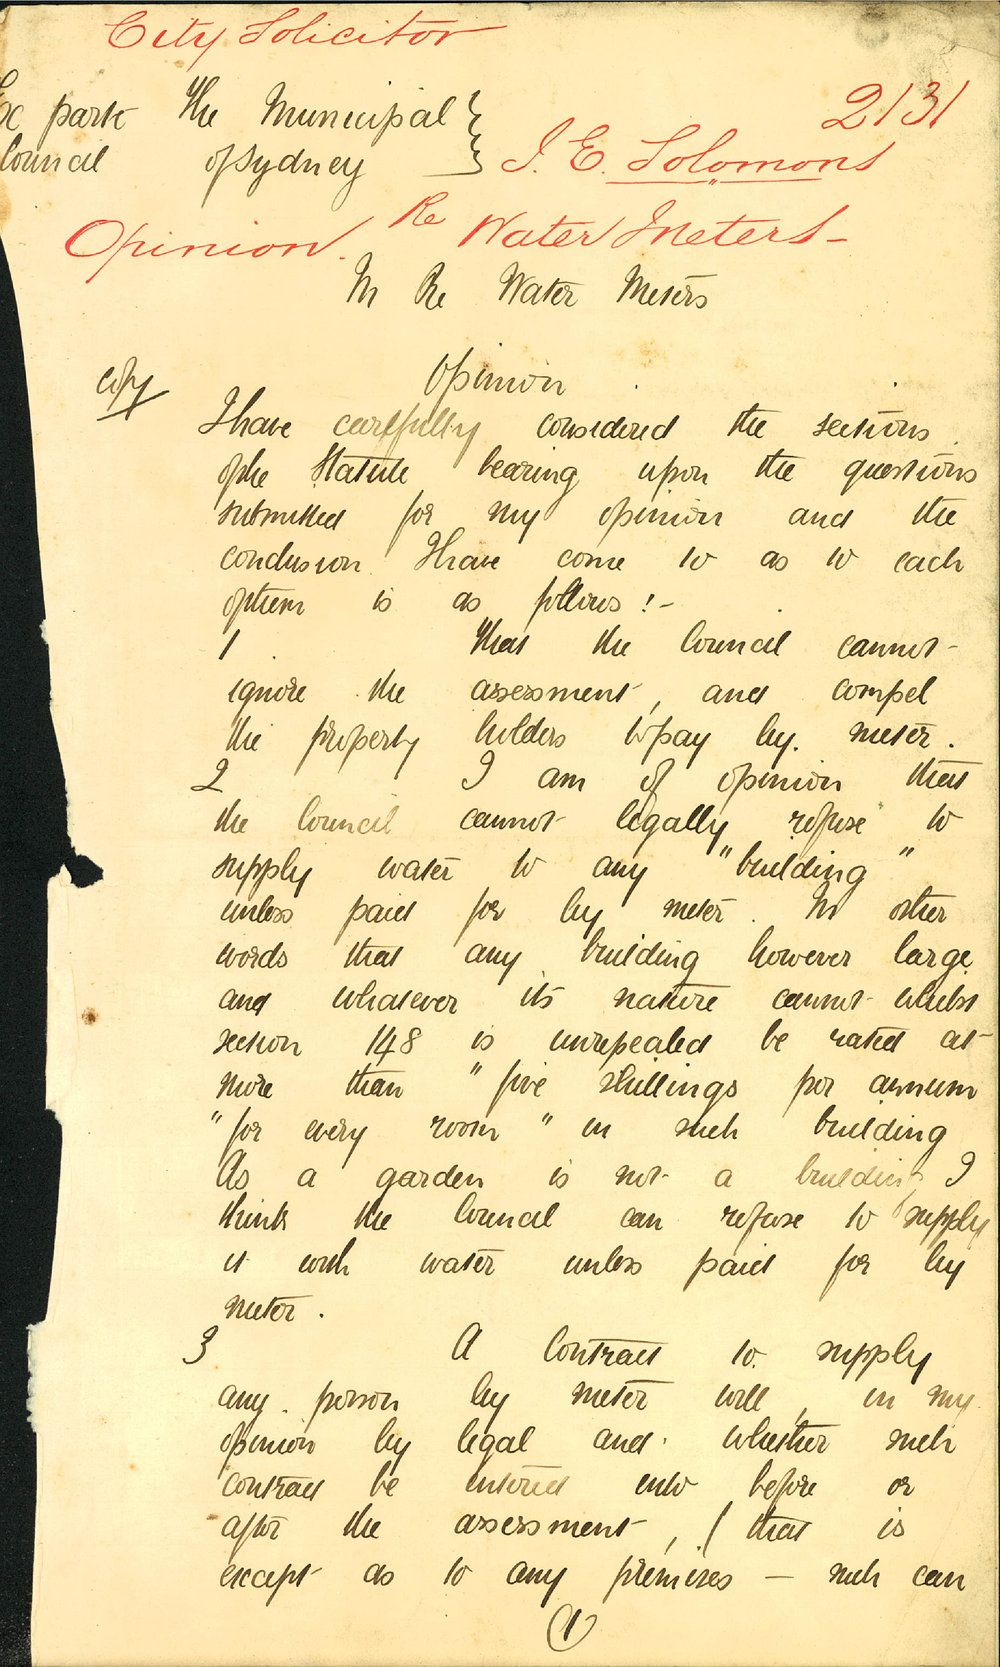 City Solicitor
Ex parte The Municipal
Council of Sydney
2/31
I. E. Solomons
Opinion. Re Water Meters -
In Re Water Meters
Copy
Opinion
I have carefully considered the sections
of the Statute bearing upon the questions
submitted for my opinion and the
conclusion I have come to as to each
of them is as follows :-
1 That the Council cannot
ignore the assessment, and compel
the property holders to pay by meter.
2 I am of opinion that
the Council cannot legally refuse to
supply water to any "building"
unless paid for by meter. In other
words that any building however large
and whatever its nature cannot whilst
section 148 is unrepealed be rated at
more than "five shillings per annum
"for every room" in such building
As a garden is not a building I
think the Council can refuse to supply
it with water unless paid for by
meter.
3 A Contract to supply
any person by meter will, in my
opinion be legal and whether such
contract be entered into before or
after the assessment, (that is
except as to any premises — such can
(1)